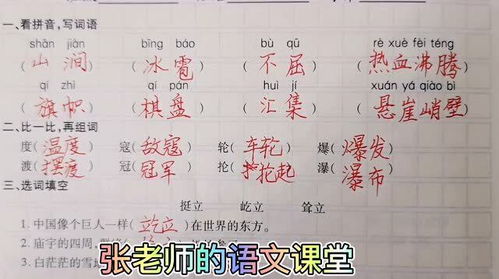 一、看拼音，写词语
shān jiàn bīng báo bù qū rè xuè fèi téng
(山涧) (冰雹) (不屈) (热血沸腾)
qí zhì qí pán huì jí xuán yá qiào bì
(旗帜) (棋盘) (汇集) (悬崖峭壁)
二、比一比，再组词
度(温度) 寇(敌寇) 轮(车轮) 爆(爆发)
渡(摆渡) 冠(冠军) 抡(抡起) 瀑(瀑布)
三、选词填空
挺立 屹立 耸立
1. 中国像个巨人一样(屹立)在世界的东方。
2. 庙宇的四周,
3. 白茫茫的雪地
张老师的语文课堂